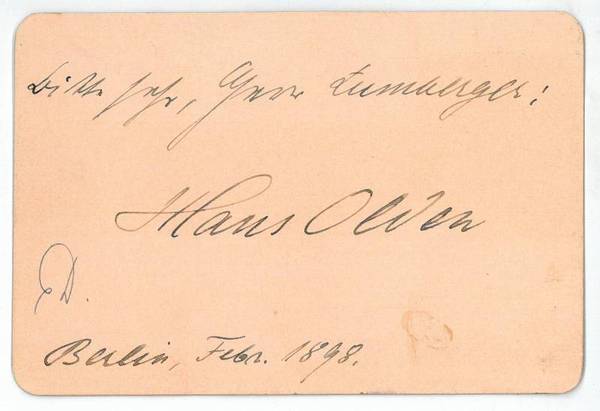 Bitte sehr, Herr Lumberger!
Hans Olden
D.
Berlin, Febr. 1898.